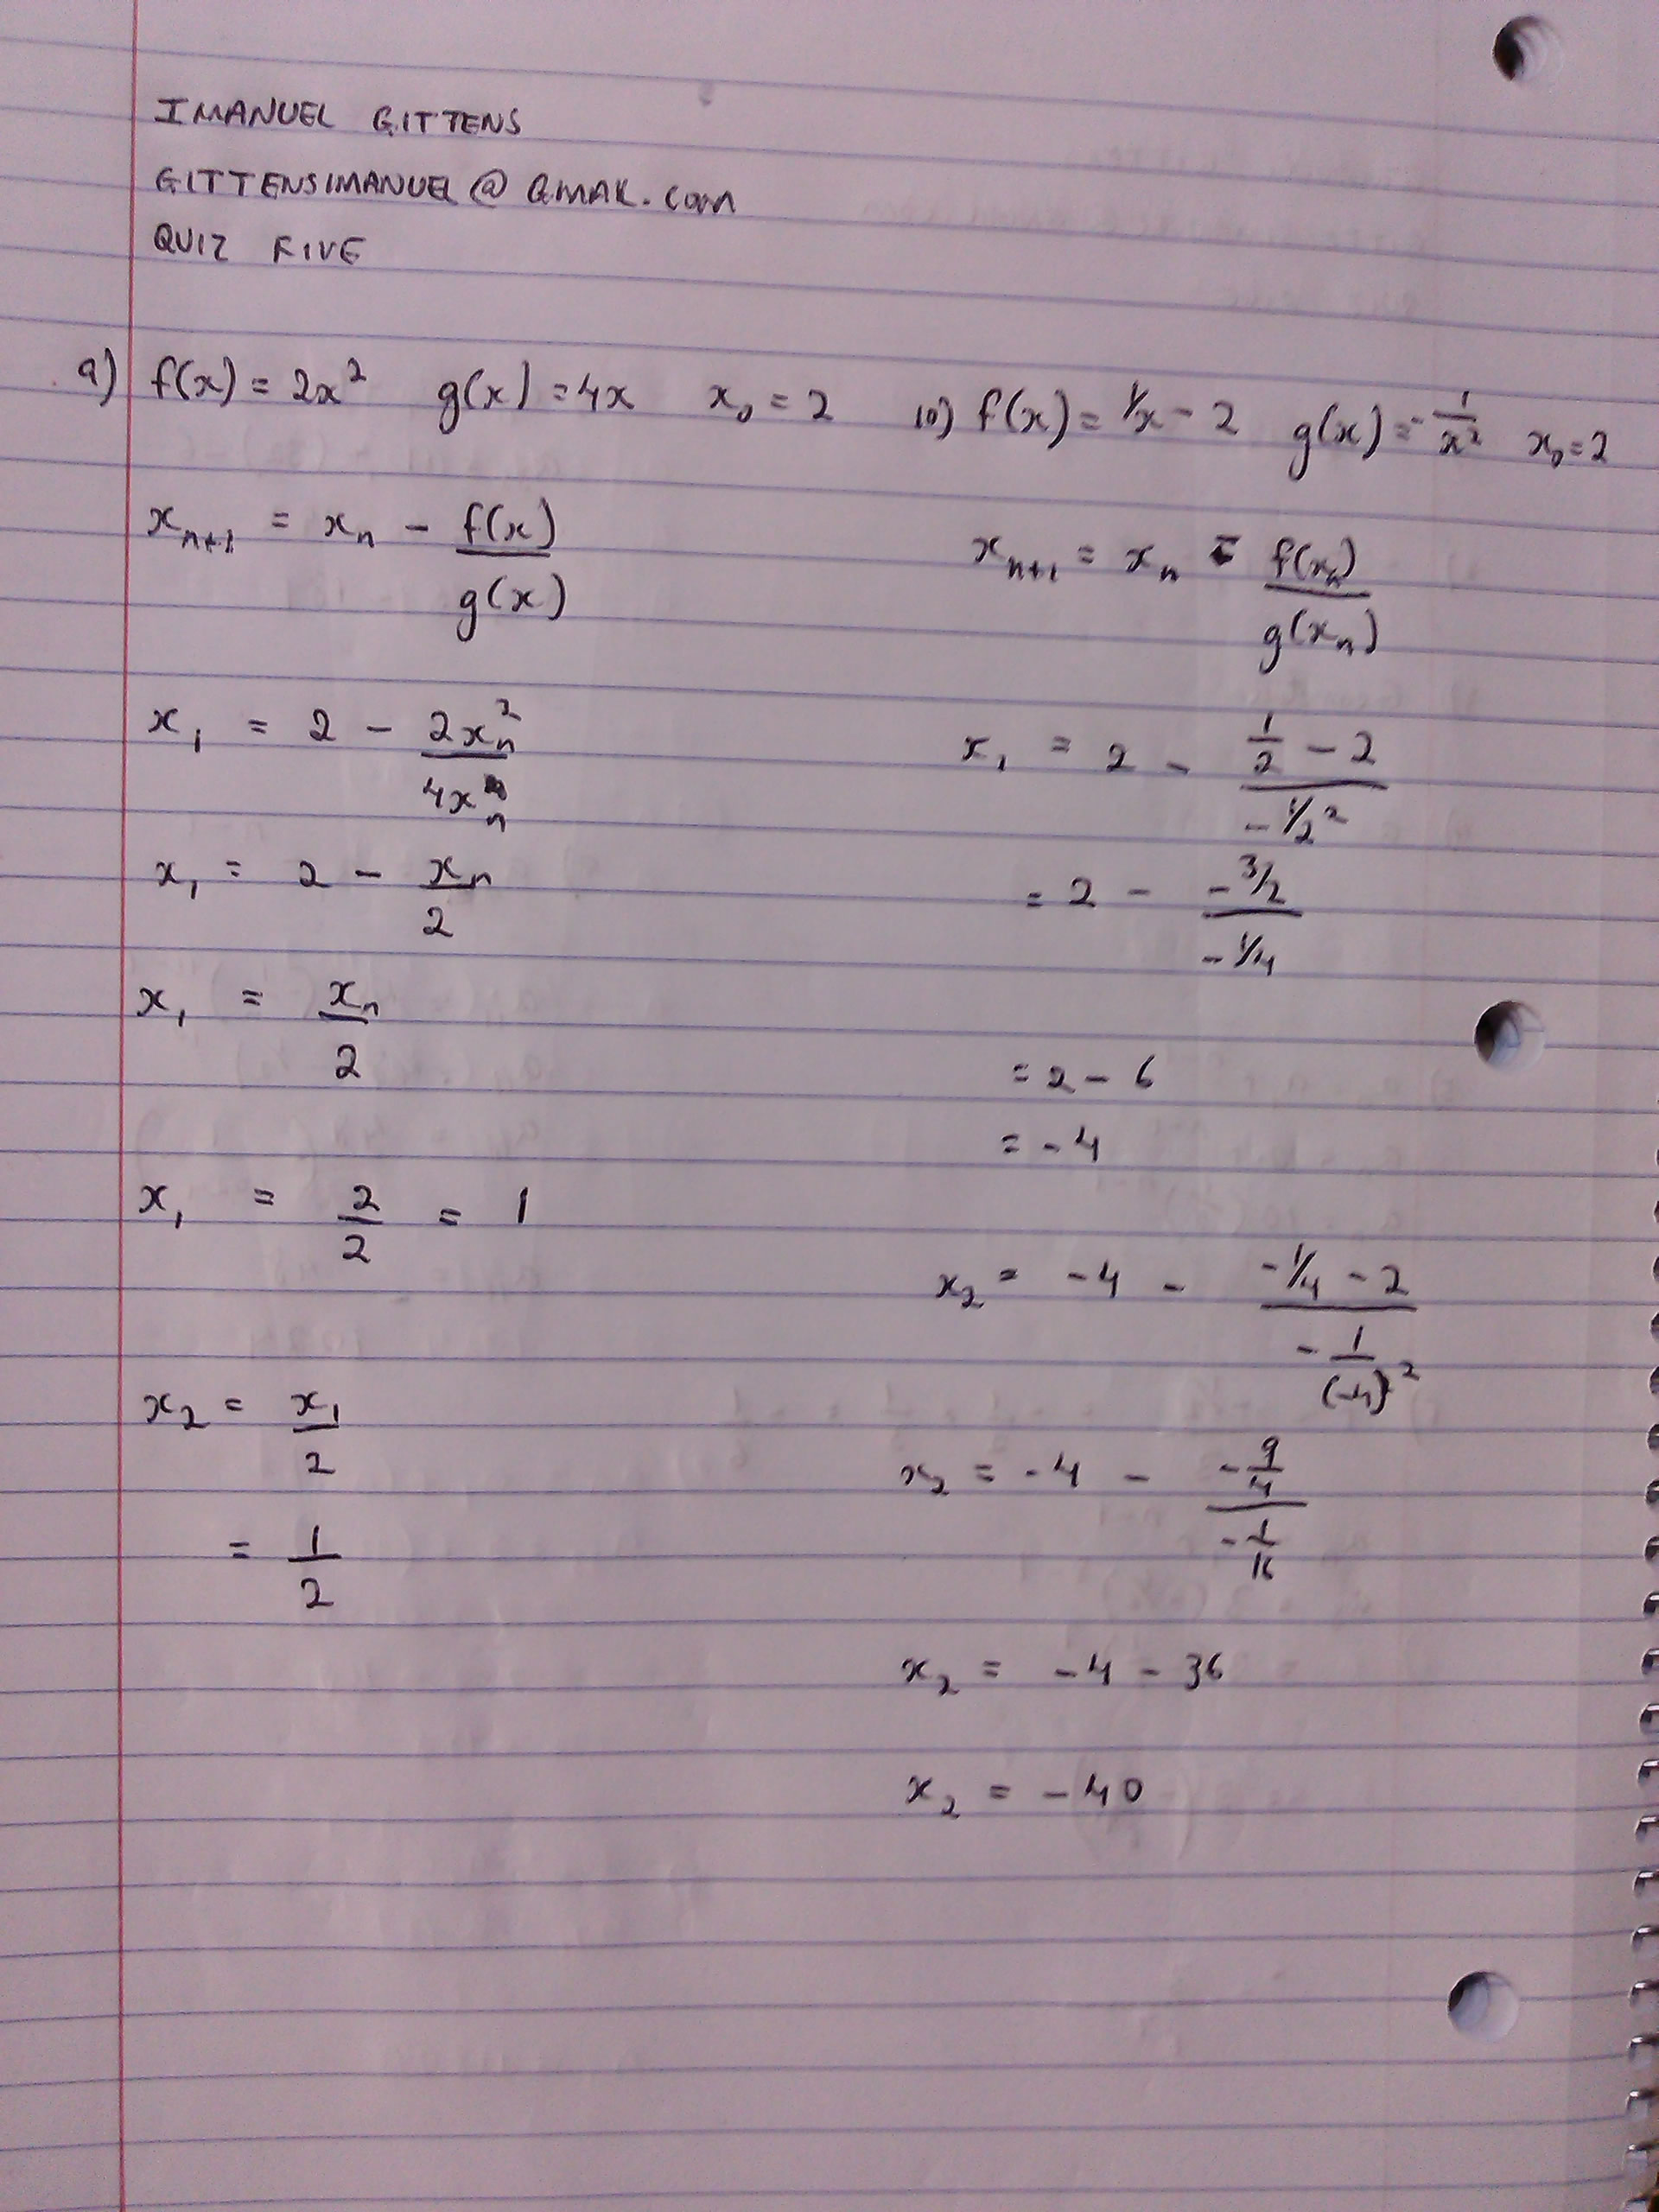 IMANUEL GITTENS
GITTENSIMANUEL@GMAIL.COM
QUIZ FIVE
9) f(x) = 2x² g(x) = 4x x₀ = 2
xₙ₊₁ = xₙ - f(x)/g(x)
x₁ = 2 - 2xₙ²/4xₙ
x₁ = 2 - xₙ/2
x₁ = xₙ/2
x₁ = 2/2 = 1
x₂ = x₁/2
= 1/2
10) f(x) = 1/x - 2 g(x) = -1/x² x₀ = 2
xₙ₊₁ = xₙ - f(xₙ)/g(xₙ)
x₁ = 2 - (1/2 - 2)/(-1/2²)
= 2 - (-3/2)/(-1/4)
= 2 - 6
= -4
x₂ = -4 - (-1/4 - 2)/(-1/(-4)²)
x₂ = -4 - (-9/4)/(-1/16)
x₂ = -4 - 36
x₂ = -40